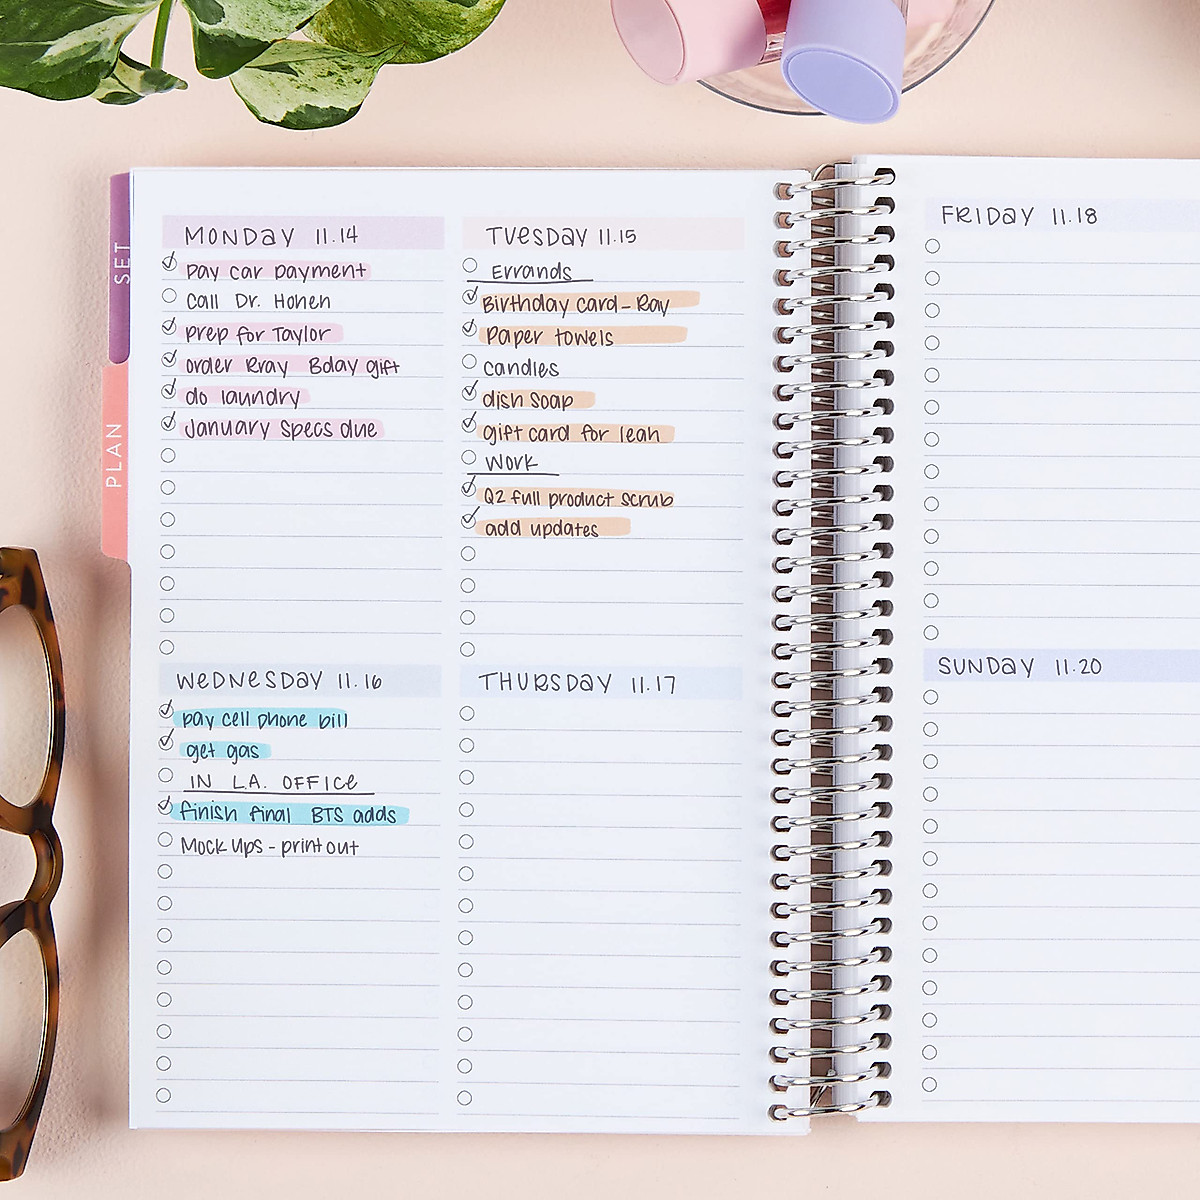 SET
PLAN
MONDAY 11.14
pay car payment
Call Dr. Honen
prep for Taylor
order Rray Bday gift
do laundry
January Specs due
TUESDAY 11.15
Errands
Birthday card - Ray
Paper towels
candles
dish Soap
gift card for leah
Work
Q2 full product scrub
add updates
WEDNESDAY 11.16
pay cell phone bill
get gas
IN L.A. OFFICE
finish final BTS adds
Mock Ups - print out
THURSDAY 11.17
FRIDAY 11.18
SUNDAY 11.20